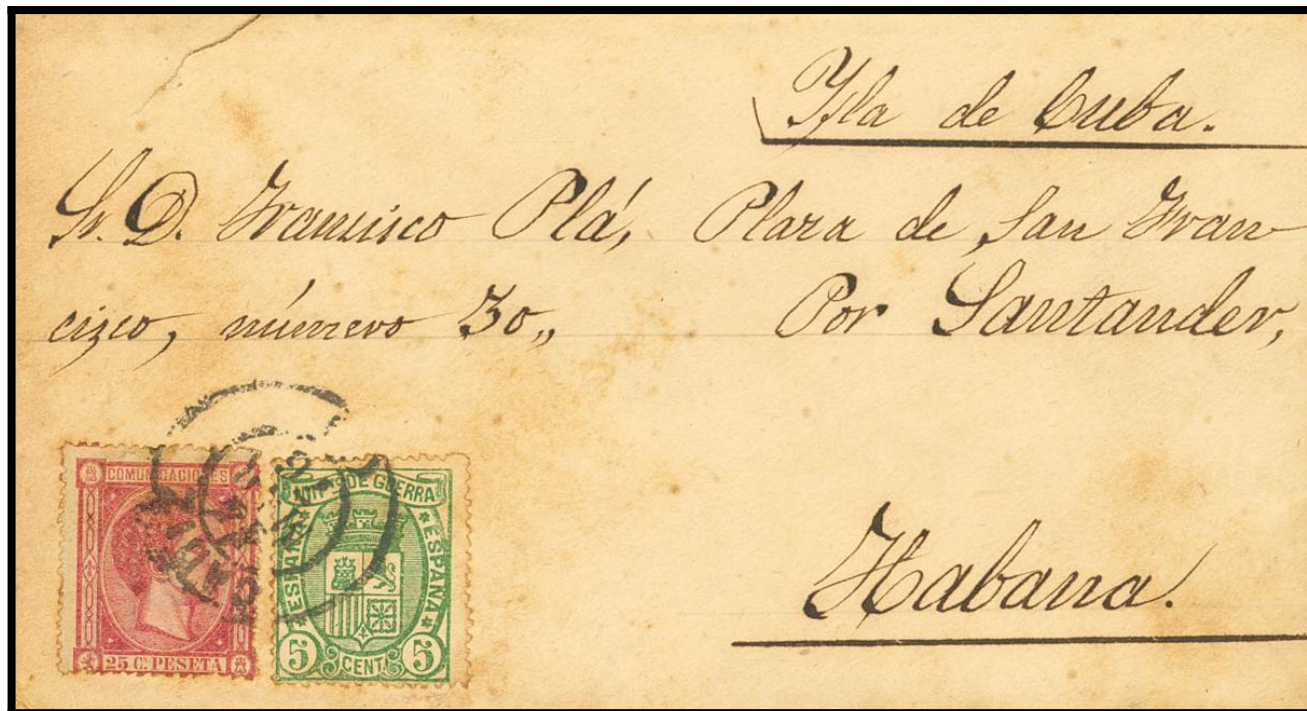 Ysla de Cuba.
Sr. D. Francisco Plá, Plaza de San Fran
cisco, número 30,, Por Santander,
COMUNICACIONES
25 C. PESETA
IMPTO DE GUERRA
ESPAÑA ESPAÑA
5 CENT. 5
Habana.